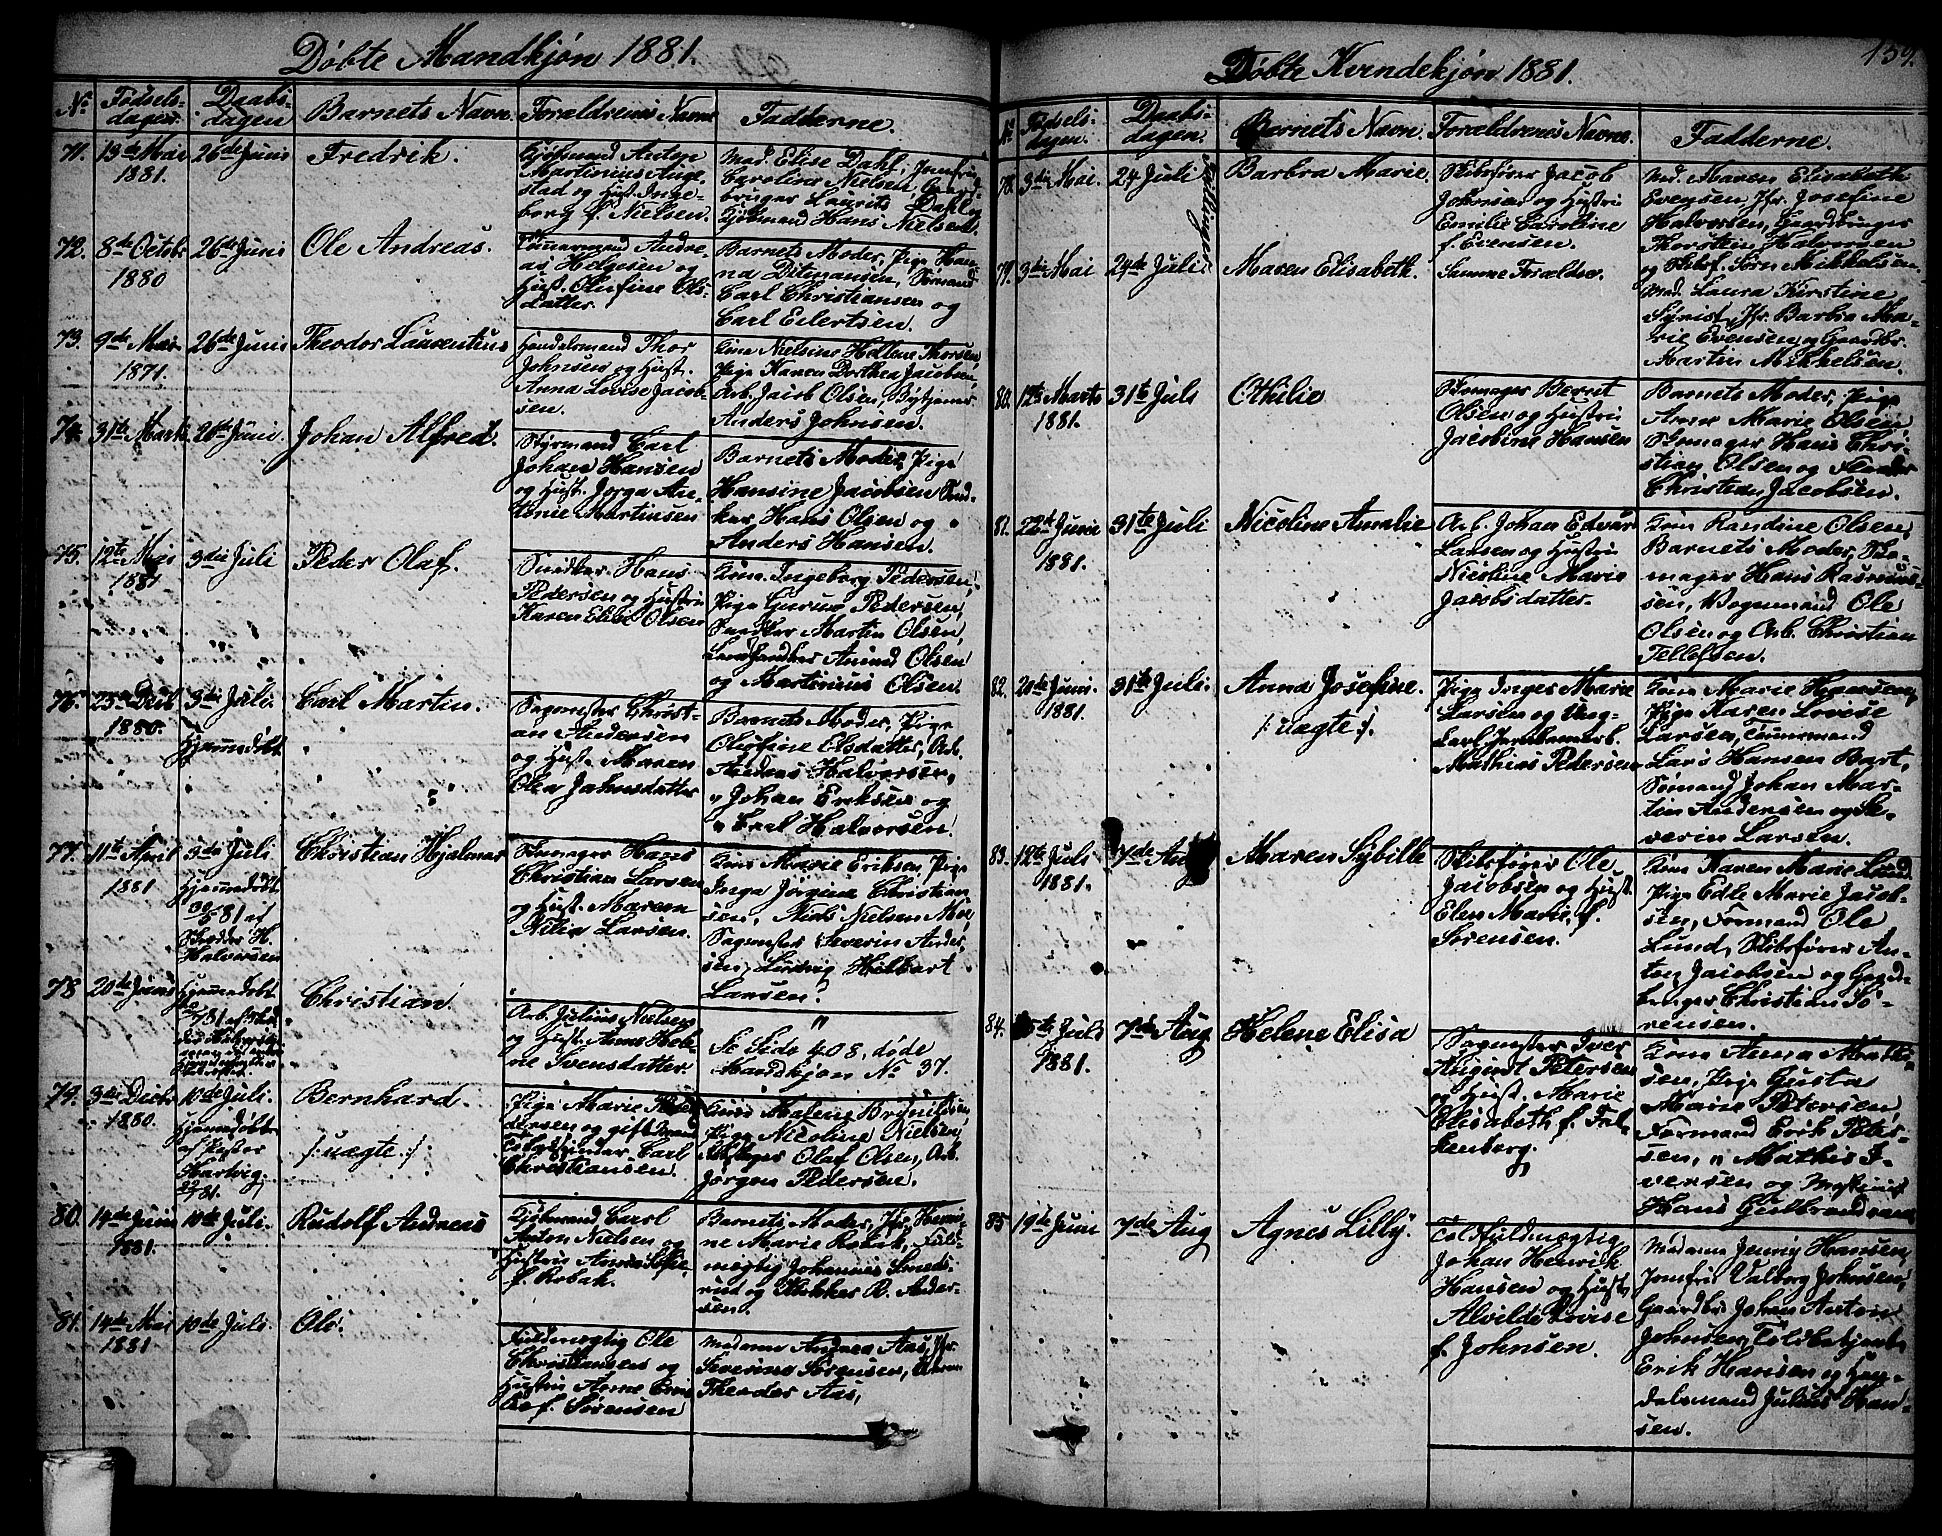 Døbte Mandkjøn 1881.
No Fødsels-dagen. Daabs-dagen Barnets Navn. Forældrenes Navne Fadderne.
71. 13de Mai 1881. 26de Juni Fredrik.
Kjøbmand Anton
Martinius Ange-
stad og Hust. Inge-
borg f. Nielsen.
Mad. Elise Dahl, Jomfru
Caroline Nielsen, Gaard-
bruger Laurits Dahl og
Kjøbmand Hans Nielsen.
72. 8de Octobr 1880 26de Juni Ole Andreas.
Tømmermand Andre-
as Helgesen og
Hust. Olufine Ols-
datter.
Barnets Moder, Pige Han-
na Ditmansen, Sømand
Carl Christiansen og
Carl Eilertsen.
73. 9de Mai 1871. 26de Juni Theodor Laurentius
Handelsmand Thor
Johnsen og Hust.
Anna Lovise Jacob-
sen.
Kone Nielsine Hellene Thorsen,
Pige Karen Dorthea Jacobsen,
Arb. Jacob Olsen, Bytjener
Anders Johnsen.
74. 31te Marts 26de Juni. Johan Alfred.
Styrmand Carl
Johan Hansen
og Hust. Jorga An-
tonie Martinsen
Barnets Moder, Pige
Hansine Jacobsen Sned-
ker Hans Olsen og
Anders Hansen.
75. 12te Mai 1881 3die Juli Peder Olaf.
Snedker Hans
Pedersen og Hustru
Karen Elise Olsen
Kone Ingeborg Pedersen,
Pige Gurine Pedersen,
Snedker Martin Olsen,
Amund Olsen
og Martinius Olsen.
76. 23de Decb 1880. 3die Juli. Hjemmedøbt Carl Martin.
Sagmester Christi-
an Andersen
og Hust. Maren
Olea Jahnsdatter
Barnets Moder, Pige
Olefine Elsdatter, Arb.
Andreas Halvorsen,
" Johan Eriksen og
" Carl Halvorsen.
77. 11te April 1881 3die Juli Christian Hjalmar
Hjemmedøbt
81 af
H.
Halvorsen
Skomager Hans
Christian Larsen
og Hust. Maren
Nilia Larsen.
Kone Marie Eriksen, Pige
Inga Jørgine Christian-
sen, Niels Nielsen Moe,
Sagmester Severin Ander-
sen, Ludvig Hilbart
Larsen.
78 20de Juni Hjemmedøbt Christian.
Arb. Julius Nielsen
og Hust. Anne Hele-
ne Svensdatter.
"
Se Side 408, døde
Mandskjøn No 37.
79. 3de Decbr 1880. 10de Juli. Bernhard.
Hjemmedøbt
af Pastor
Hartvig
/: uægte :/
Pige Marie
dersen og gift Mand
Carl
Christiansen.
Kone Malene Brynildsen,
Pige Nicoline Nielsen,
Olaf Olsen, Arb.
Jørgen Pedersen.
80. 14de Juni 1881. 10de Juli. Rudolf Andreas
Kjøbmand Carl
Anton Nielsen og
Hustru Anna Sofie
f. Robak.
Barnets Moder, Jfr. Henri-
ne Marie Robak, Fuld-
mægtig Johannes Smeds-
rud og Klokker R. Ander-
sen.
81. 14de Mai 1881 10de Juli. Ole.
Fuldmægtig Ole
Christiansen og
Hustru Anne
f. Sørensen
Madame Andrea Aas, Jfr.
Severine Sørgensen,
Theodor Aas,
Døbte Kvindekjøn 1881.
159.
No Fødsels-dagen. Daabs-dagen. Barnets Navn. Forældrenes Navne. Fadderne.
78. 3die Mai. 24 Juli Tvillinger Barbra Marie.
Skibsfører Jacob
Johnsen og Hustru
Emilie Caroline
f. Evensen.
Mad. Maren Elisabeth
Evensen, Jfr. Josefine
Halvorsen, Gaardbruger
Thorstein Halvorsen
og Skibsf. Sørn Mikkelsen.
79. 3die Mai 24de Juli Maren Elisabeth.
Samme Forældre.
Mad. Laura Kirstine
Synist, Jfr. Barbra Ma-
rie Evensen og Gaardbr.
Martin Mikkelsen.
80. 12te Marts 1881. 31te Juli Othilie
Skomager Bernt
Olsen og Hustru
Jacobine Hansen
Barnets Moder, Pige
Anne Marie Olsen
Skomager Hans Chri-
stian Olsen og
Christian Jacobsen.
81. 22de Junie 1881. 31te Juli Nicoline Amalie
Arb. Johan Edvar
Larsen og Hustru
Nicoline Marie
Jacobsdatter.
Kone Randine Olsen,
Barnets Moder, Sko-
mager Hans Rasmus-
sen, Vognmand Ole
Olsen og Arb. Christian
Tellefsen.
82. 20de Juni. 1881. 31te Juli. Anna Josefine.
/: uægte :/.
Pige Inger Marie
Larsen og Ung-
karl
Mathias Pedersen
Kone Marie Hansen,
Pige Karen Lovise
Larsen, Tømmermand
Lars Hansen Bart,
Sømand Johan Mar-
tin Andersen og Se-
verin Larsen.
83. 12te Juli 1881. 7de Aug Maren Sybille
Skibsfører Ole
Jacobsen og Hust.
Elen Marie, f.
Sørensen.
Kone Karen Marie Lund
Pige Edle Marie Jacob-
sen, Formand Ole
Lund, Skibsfører An-
ton Jacobsen og Gaard-
bruger Christian Sø-
rensen.
84. 5te Juli 1881. 7de Aug Helene Elisa
Sagmester Iver
August Petersen
og Hust. Marie
Elisabeth f. Fal-
kenberg.
Kone Anna Mathi-
sen, Pige Gusta
Marie Petersen,
Formand Erik Peter-
sen, " Mathis I-
versen og Maskinist
Hans Gulbrandsen.
85 19de Juni 7de Aug Agnes Lilly.
Toldfuldmægtig
Johan Henrik
Hansen og Hust.
Alvilde Lovise
f. Johnsen.
Madame Jenny Hansen,
Jomfru Valborg Johnsen,
Gaardbr. Johan Anton
Johnsen, Toldbetjent
Erik Hansen og Han-
delsmand Julius Han-
sen.